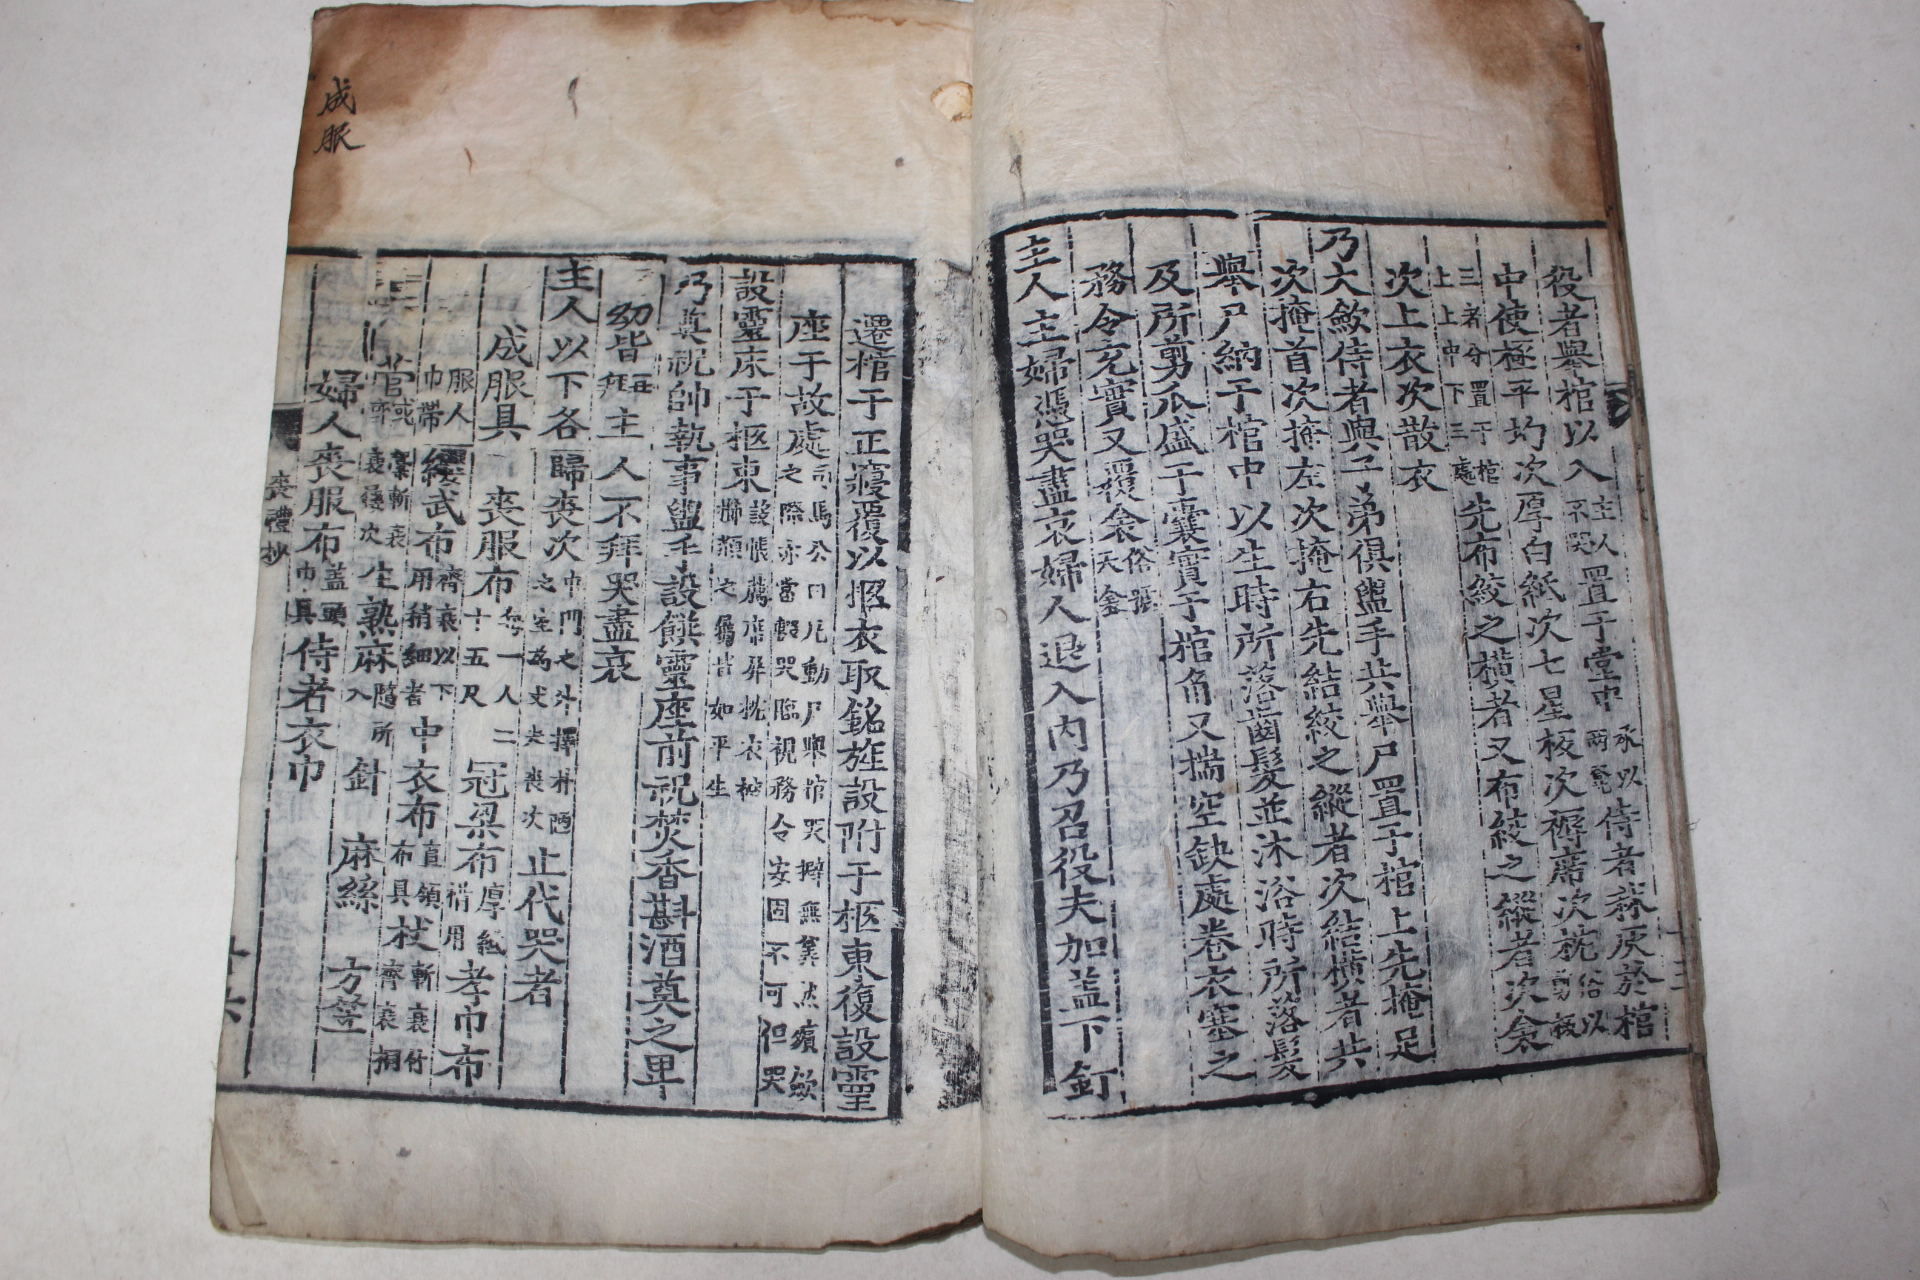 役者舉棺以入主人不哭置于堂中承以兩凳侍者藉灰於棺
中使極平均次厚白紙次七星板次褥席次枕俗以剪板次衾
三者分置于棺上上中下三處先布絞之橫者又布絞之縱者次衾
次上衣次散衣
乃大斂侍者與子弟俱盥手共舉尸置于棺上先掩足
次掩首次掩左次掩右先結絞之縱者次結橫者共
舉尸納于棺中以生時所落齒髮並沐浴時所落髮
及所剪爪盛于囊實于棺角又揣空缺處卷衣塞之
務令充實又覆衾俗稱天衾
主人主婦憑哭盡哀婦人退入內乃召役夫加蓋下釘
遷棺于正寢覆以柩衣取銘旌設跗于柩東復設靈
座于故處司馬公曰凡動尸舉柩哭擗無筭然殯斂之際亦當輟哭臨視務令安固不可但哭
設靈床于柩東設帳薦席屏枕衣被櫛頮之屬皆如平生
乃奠祝帥執事盥手設饌靈座前祝焚香斟酒奠之卑
幼皆再拜主人不拜哭盡哀
主人以下各歸喪次中門之外擇朴陋之室爲丈夫喪次止代哭者
成服具 喪服布每一人二十五尺 冠梁布厚紙褙用孝巾布
服人巾帶纓武布齊衰以下用稍細者中衣布直領布具杖斬衰竹齊衰桐
菅或藁斬衰齊衰次生熟麻隨所入針 麻絲 方笠
婦人喪服布蓋頭巾具侍者衣巾
喪禮抄
十六
成服